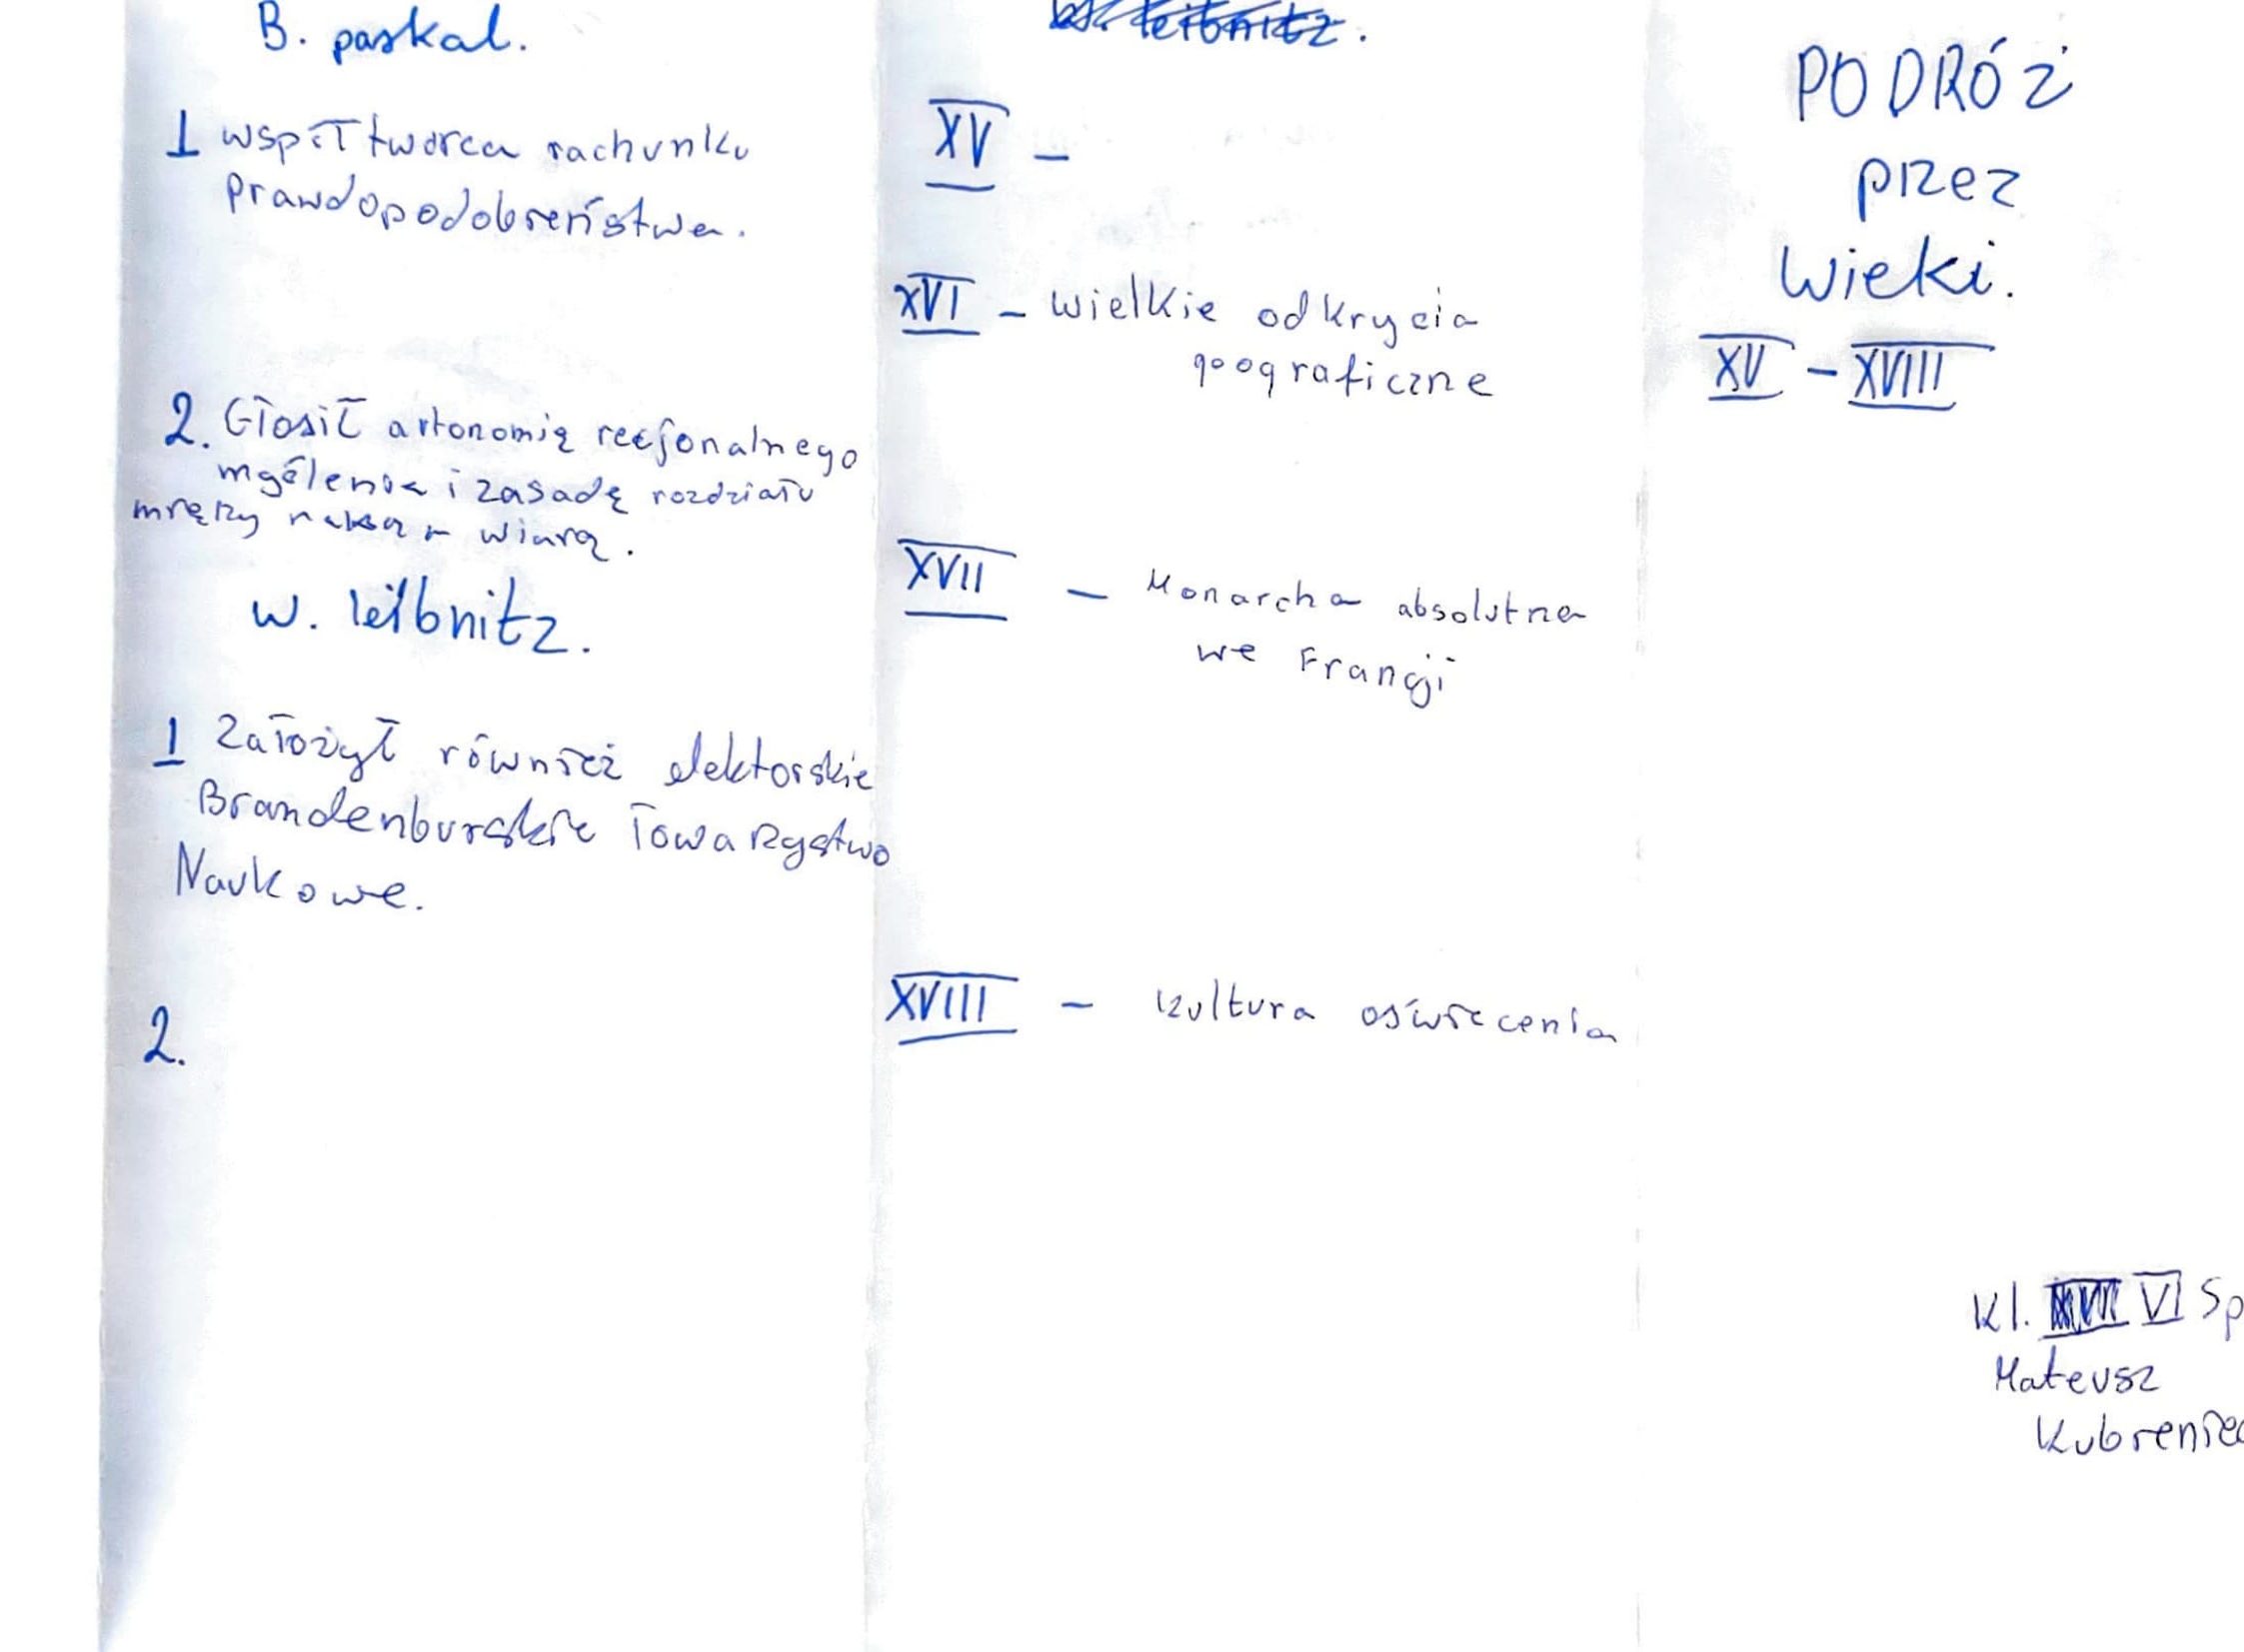 B. paskal.
1 współtworca rachunku
prawdopodobreństwa.
2. Głosił artonomię recjonalnego
i zasadę rozdziału
wiarą.
w. leibnitz.
1 Założył również elektorskie
Brandenburskie Towarzystwo
Naukowe.
2.
leibnitz.
XV –
XVI – wielkie odkrycia
geograficzne
XVII – Monarcha absolutna
we Francji
XVIII – kultura oświecenia
PODRÓŻ
przez
wieki.
XV – XVIII
Kl. VI Sp
Mateusz